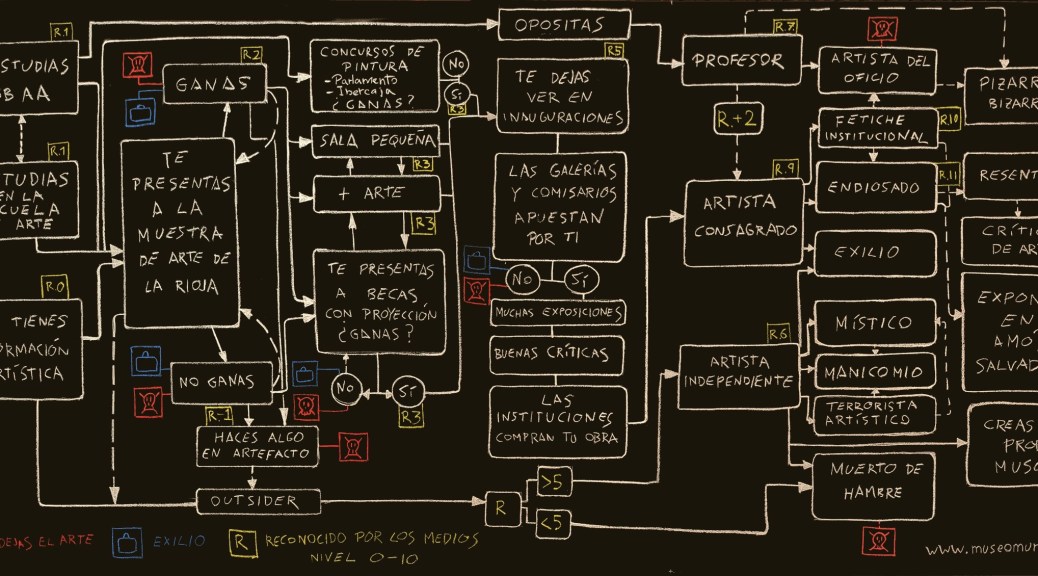 R.1
STUDIAS
BB AA
R.1
TUDIAS
EN LA
CUELA
ARTE
R.0
TIENES
ORMACIÓN
RTÍSTICA
R.2
GANAS
TE
PRESENTAS
A LA
MUESTRA
DE ARTE DE
LA RIOJA
NO GANAS
R.-1
HACES ALGO
EN ARTEFACTO
OUTSIDER
CONCURSOS DE
PINTURA
- Parlamento
- Ibercaja
¿GANAS?
NO
SÍ
R3
SALA PEQUEÑA
R3
+ ARTE
R3
TE PRESENTAS
A BECAS
CON PROYECCIÓN
¿GANAS?
NO
SÍ
R3
OPOSITAS
R5
TE DEJAS
VER EN
INAUGURACIONES
LAS GALERÍAS
Y COMISARIOS
APUESTAN
POR TI
NO
SÍ
MUCHAS EXPOSICIONES
BUENAS CRÍTICAS
LAS
INSTITUCIONES
COMPRAN TU OBRA
R
>5
<5
R.7
PROFESOR
R.+2
R.9
ARTISTA
CONSAGRADO
R.6
ARTISTA
INDEPENDIENTE
ARTISTA DEL
OFICIO
FETICHE
INSTITUCIONAL
R.10
ENDIOSADO
R.11
EXILIO
MÍSTICO
MANICOMIO
TERRORISTA
ARTÍSTICO
MUERTO DE
HAMBRE
PIZARR
BIZARR
RESENT
CRÍTIC
DE AR
EXPON
EN
AMÓ
SALVAD
CREAS
PRO
MUSE
DEJAS EL ARTE
EXILIO
R
RECONOCIDO POR LOS MEDIOS
NIVEL 0-10
www.museomur